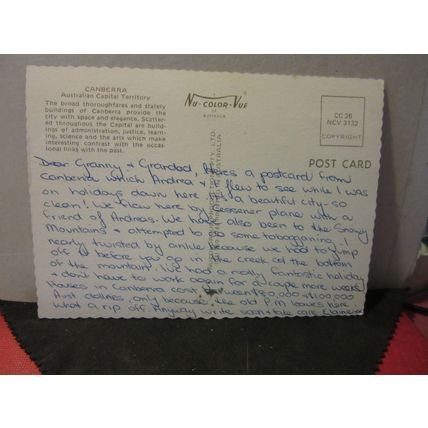 CANBERRA
Australian Capital Territory
The broad thoroughfares and stately
buildings of Canberra provide the
city with space and elegance. Scatter-
ed throughout the Capital are build-
ings of administration, justice, learn-
ing, science and the arts which make
interesting contrast with the occas-
ional links with the past.
Nu-COLOR-VUE
AUSTRALIA
CC 26
NCV 3132
COPYRIGHT
POST CARD
Dear Granny & Grandad, heres a postcard from
Canberra which Andrea & I flew to see while I was
on holidays down here. Its a beautiful city-so
clean! We flew here by cessener plane with a
friend of Andreas. We have also been to the Snowy
Mountains & attempted to do some tobogganing. I
nearly twisted by ankle because we had to jump
off it before you go in the creek at the bottom
of the mountain. We had a really fantastic holiday
& dont have to work again for a couple more weeks
Houses in Canberra cost between $80,000 - $100,000
Aust dollars, only because the old P.M. leaves here.
What a rip off. Anyway write soon & take care.